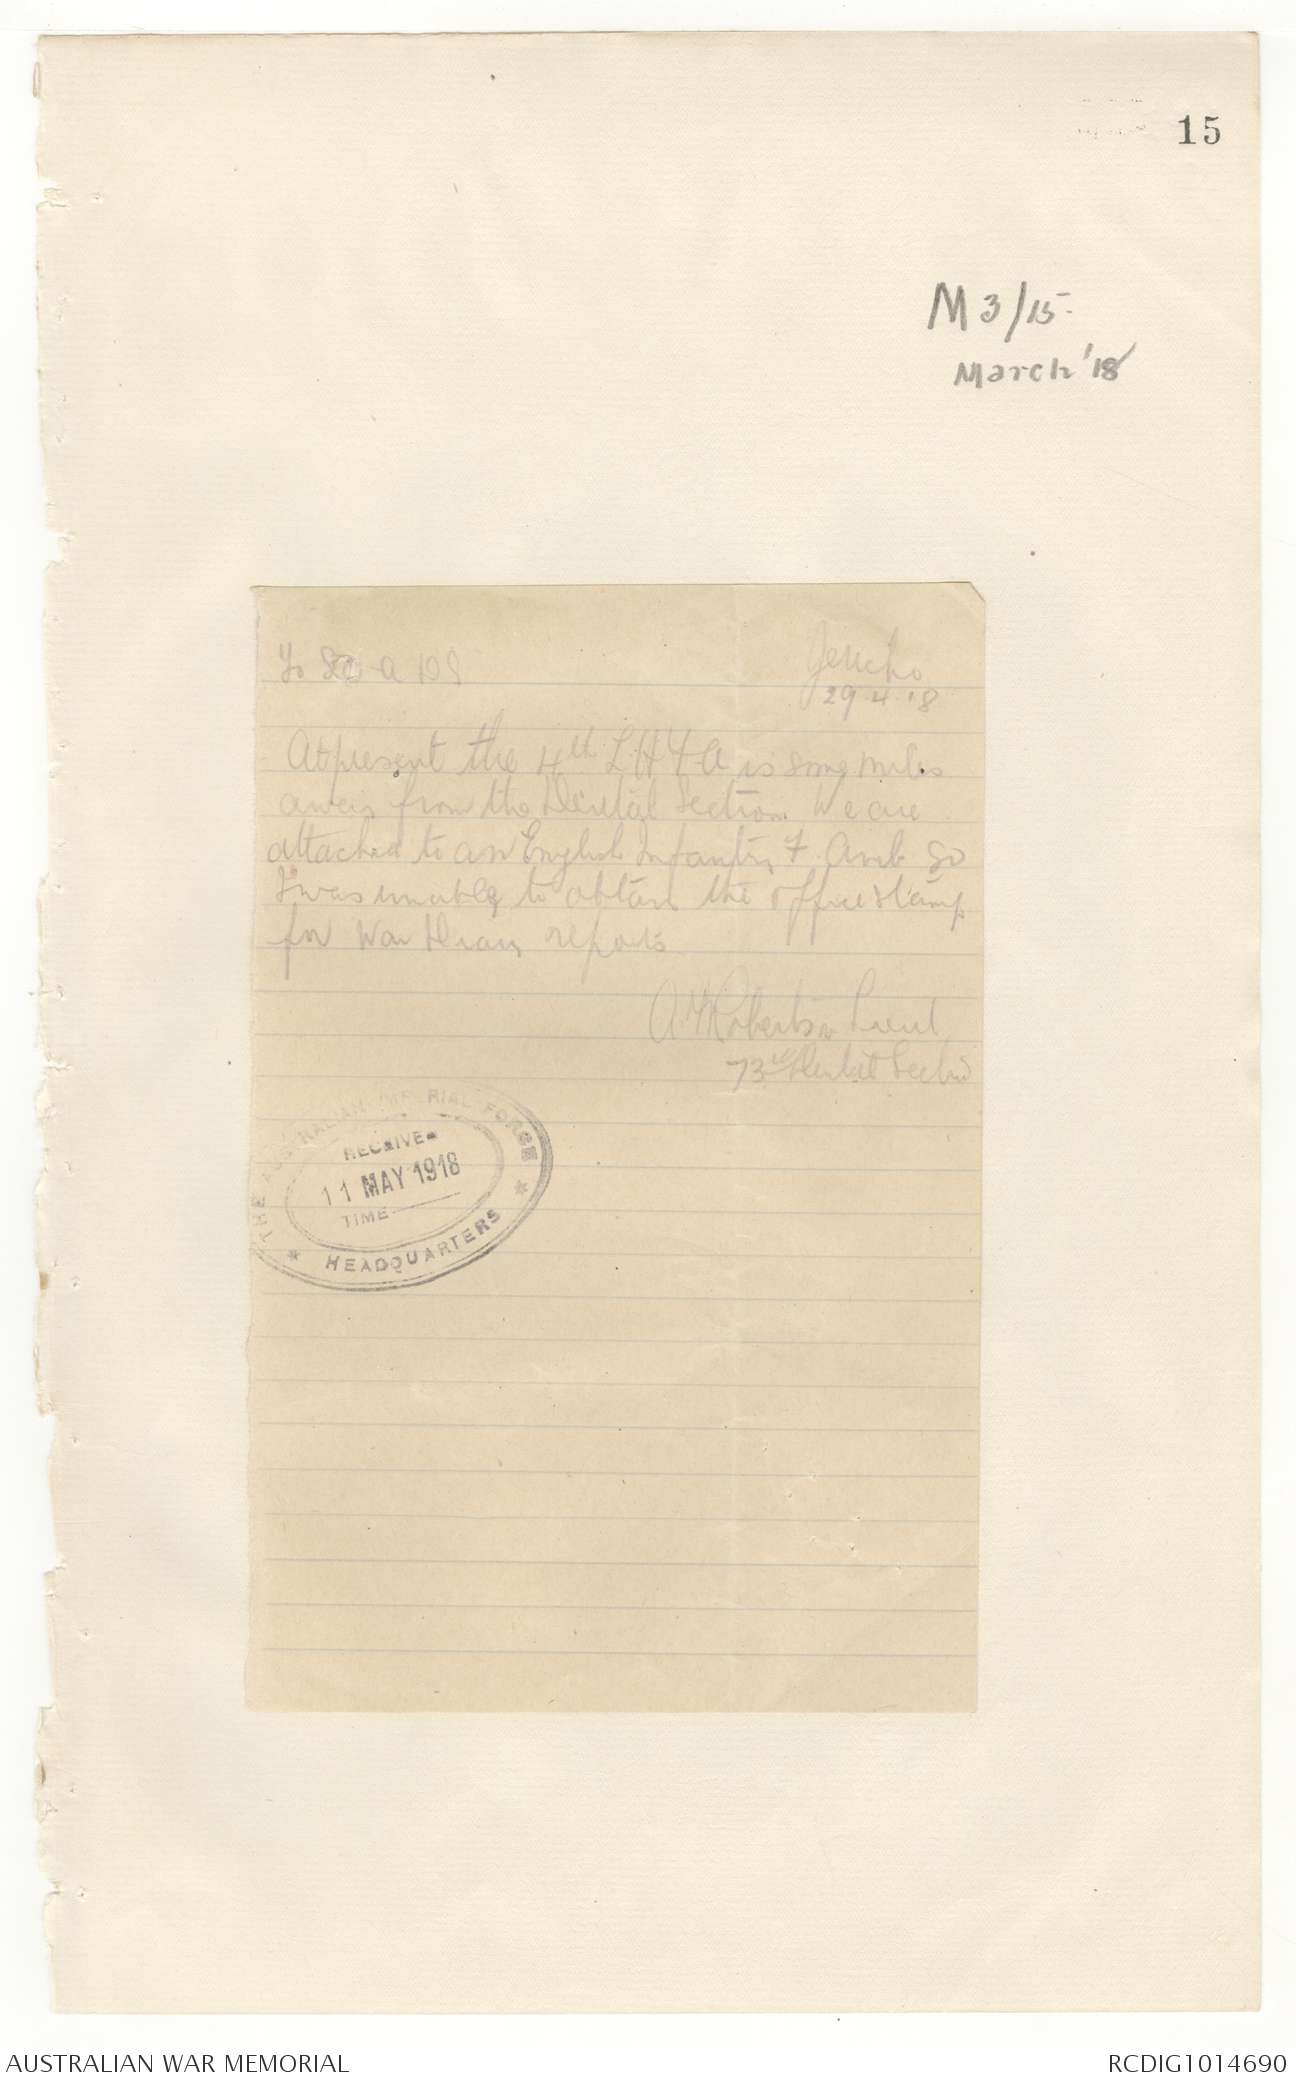 15
M 3/15.
March '18
Jericho
29.4.18
At present the 4th L H F A is some miles
away from the Dental Section. We are
attached to an English Infantry F. Amb so
I was unable to obtain the office stamp
for War Diary reports.
A Robertson Lieut
73rd Dental Section
THE AUSTRALIAN IMPERIAL FORCE
RECEIVED
11 MAY 1918
TIME
* HEADQUARTERS *
AUSTRALIAN WAR MEMORIAL
RCDIG1014690